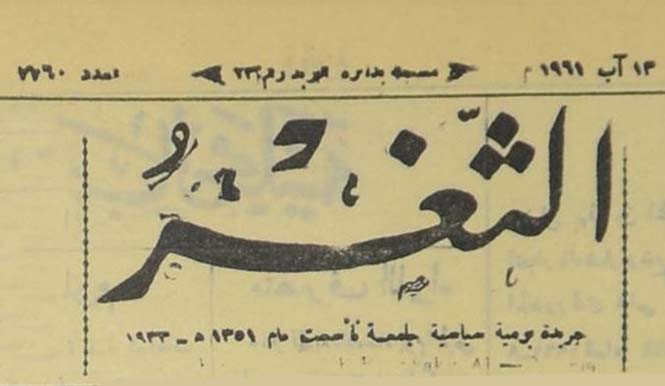 ١٣ آب ١٩٦١ م مسجلة بدائرة البريد رقم ٢٣٦ العدد ٧٧٦٠
الثَّغْرُ
جريدة يومية سياسية جامعة تأسست عام ١٣٥١ ه - ١٩٣٣